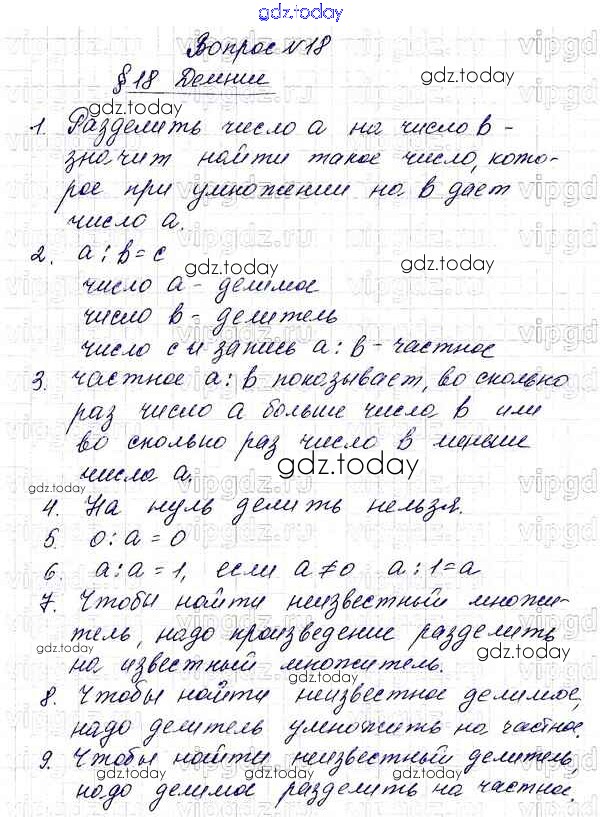 gdz.today
Вопрос №18
§18 Деление
1. Разделить число a на число b -
значит найти такое число, кото-
рое при умножении на b дает
число a.
2. a : b = c
число a - делимое
число b - делитель
число c и запись a : b - частное
3. частное a : b показывает, во сколько
раз число a больше числа b или
во сколько раз число b меньше
числа a.
4. На нуль делить нельзя.
5. 0 : a = 0
6. a : a = 1, если a ≠ 0 a : 1 = a
7. Чтобы найти неизвестный множи-
тель, надо произведение разделить
на известный множитель.
8. Чтобы найти неизвестное делимое,
надо делитель умножить на частное.
9. Чтобы найти неизвестный делитель,
надо делимое разделить на частное.